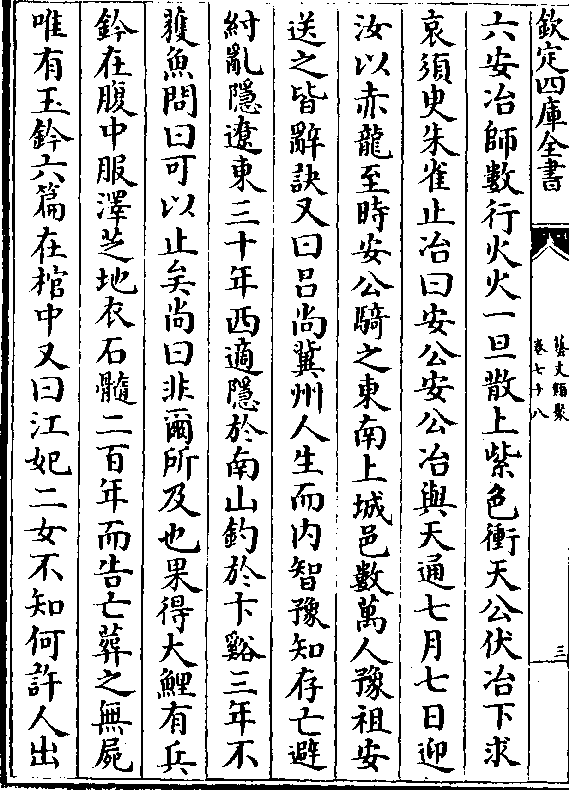 欽定四庫全書
藝文類聚
卷七十八
三
六安冶師數行火火一旦散上紫色衝天公伏冶下求
哀須臾朱雀止冶曰安公安公冶與天通七月七日迎
汝以赤龍至時安公騎之東南上城邑數萬人豫祖安
送之皆辭訣又曰呂尚冀州人生而内智豫知存亡避
紂亂隱遼東三十年西適隱於南山釣於卞谿三年不
獲魚問曰可以止矣尚曰非爾所及也果得大鯉有兵
鈐在腹中服澤芝地衣石髓二百年而告亡葬之無屍
唯有玉鈐六篇在棺中又曰江妃二女不知何許人出